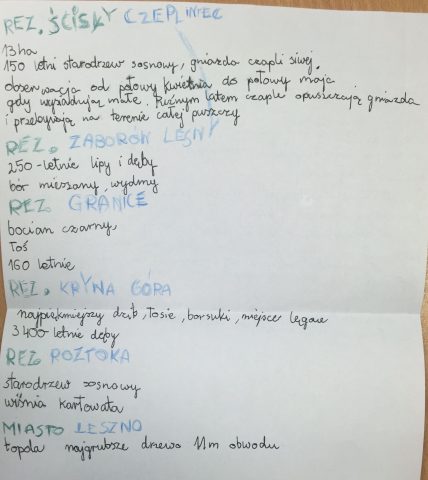 REZ. ŚCISŁY CZEPLINIEC
13ha
150 letni starodrzew sosnowy, gniazda czapli siwej.
obserwacja od połowy kwietnia do połowy maja
gdy wysiadują małe. Późnym latem czaple opuszczają gniazda
i przebywają na terenie całej puszczy
REZ. ZABORÓW LEŚNY
250-letnie lipy i dęby
bór mieszany, wydmy
REZ. GRANICE
bocian czarny,
łoś
160 letnie
REZ. KRYNA GÓRA
łosie, borsuki, miejsce lęgowe
3 400 letnie dęby
REZ. ROŻTOKA
starodrzew sosnowy
wiśnia karłowata
MIASTO LESZNO
topola najgrubsze drzewo 11m obwodu